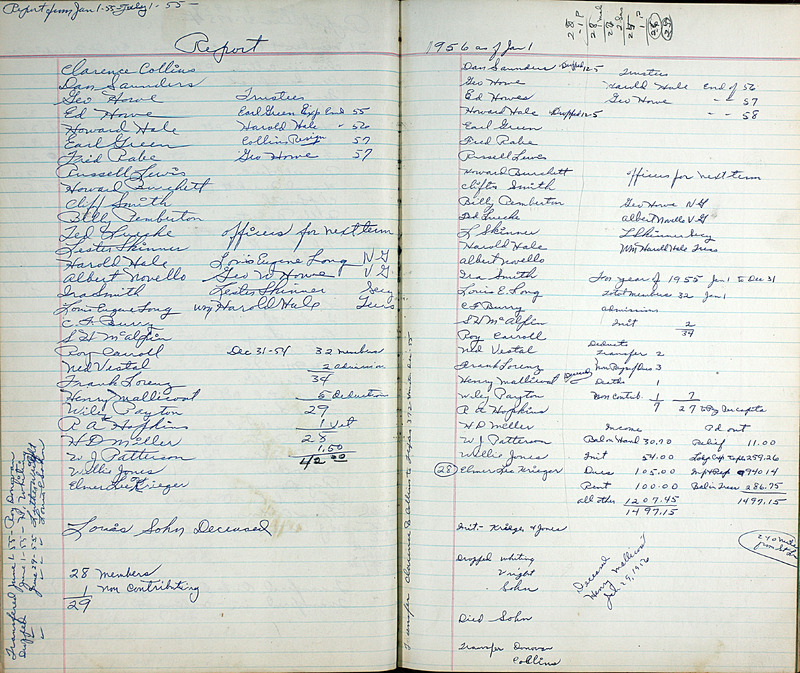 Report from Jan 1-55-July 1-55-
Report
Clarence Collins
Dan Saunders
Geo Howe Trustees
Ed Howe Earl Green Exp End 55
Howard Hale Harold Hale - 56
Earl Green Collins Resign 57
Fred Rabe Geo Howe 57
Russell Lewis
Howard Burchett
Cliff Smith
Billy Pemberton
Ted Luecke officers for next term
Lester Skinner
Harold Hale Louis Eugene Long N G
Albert Novello Geo W Howe V G
Ira Smith Lester Skinner Secy
Louis Eugene Long Wm Harold Hale Ters
C F Burry
S H McAlpin
Roy Carroll Dec 31-54 32 members
Ned Vestal 2 admission
Frank Lorenz 34
Henry Mallicoat 5 deduction
Wiley Payton 29
R A Hopkins 1 Vet
H D Miller 28
W J Patterson 1.50
Willie Jones 42 00
Elmer Lee Krieger
Louis Sohn Deceased
28 members
1 non contributing
29
Transfered June 1-55-Roy Donovan
Dropped June 1-55-
June 29-55
1956 as of Jan 1
Dan Saunders Dropped 12-5 Trustees
Geo Howe Harold Hale End of 56
Ed Howes Geo Howe - - 57
Howard Hale Dropped 12-5 - - 58
Earl Green
Fred Rabe
Russell Lewis
Howard Burchett officers for next term
Clifton Smith
Billy Pemberton Geo Howe N G
Ted Luecke Albert Novello V G
L Skinner L Skinner Secy
Harold Hale Wm Harold Hale Treas
Albert Novello
Ira Smith For year of 1955 Jan 1 to Dec 31
Louis E. Long Total members 32 Jan 1
C F Burry admissions
S H McAlpin Init 2
Roy Carroll 34
Ned Vestal Deducts
Transfer 2
Frank Lorenz Non Pay of Dues 3
Henry Mallicoat Deceased Deaths 1
Wiley Payton Non Contrib. 1 7
R A Hopkins 7 27
H D Miller Income Pd out
W J Patterson Bal on Hand 30.70 Relief 11.00
Willie Jones Init 54.00 259.26
28 Elmer Lee Krieger Dues 105.00 940.14
Rent 100.00 Bal in Treas 286.75
all other 1207.45 1497.15
1497.15
Init - Krieger & Jones
Dropped Whiting
Vright
Sohn
Deceased
Henry Mallicoat
Died Sohn
Transfer Donovan
Collins